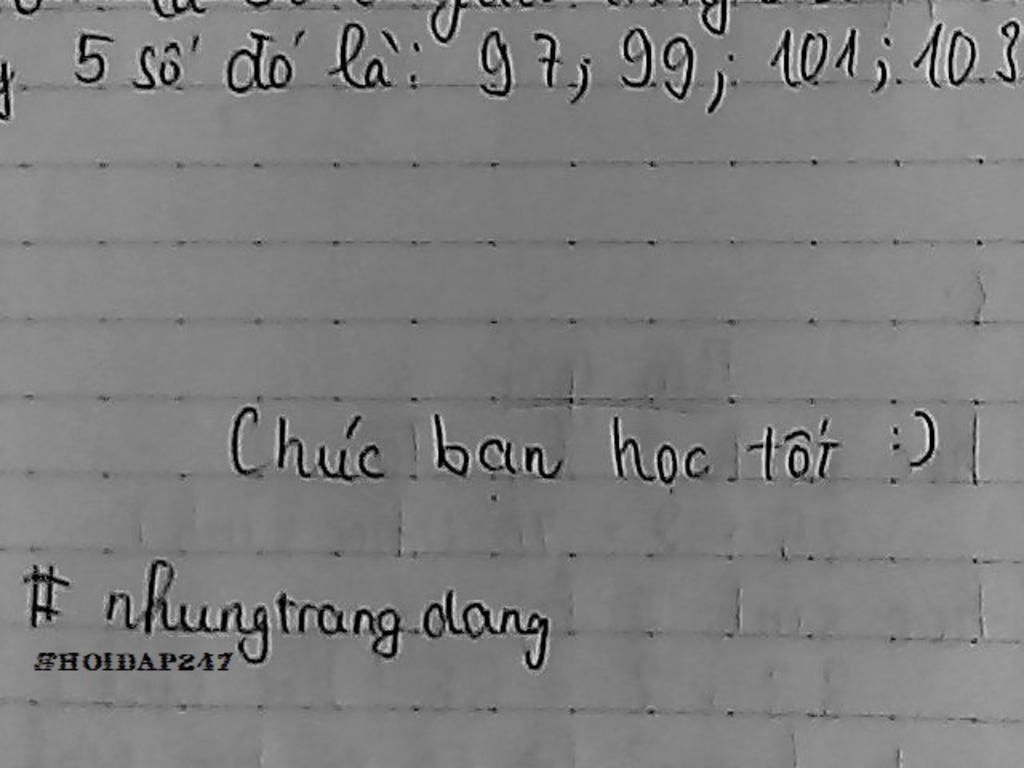 5 số đó là: 97; 99; 101; 103
Chúc bạn học tốt :)
# nhungtrangdang
#HOIDAP247